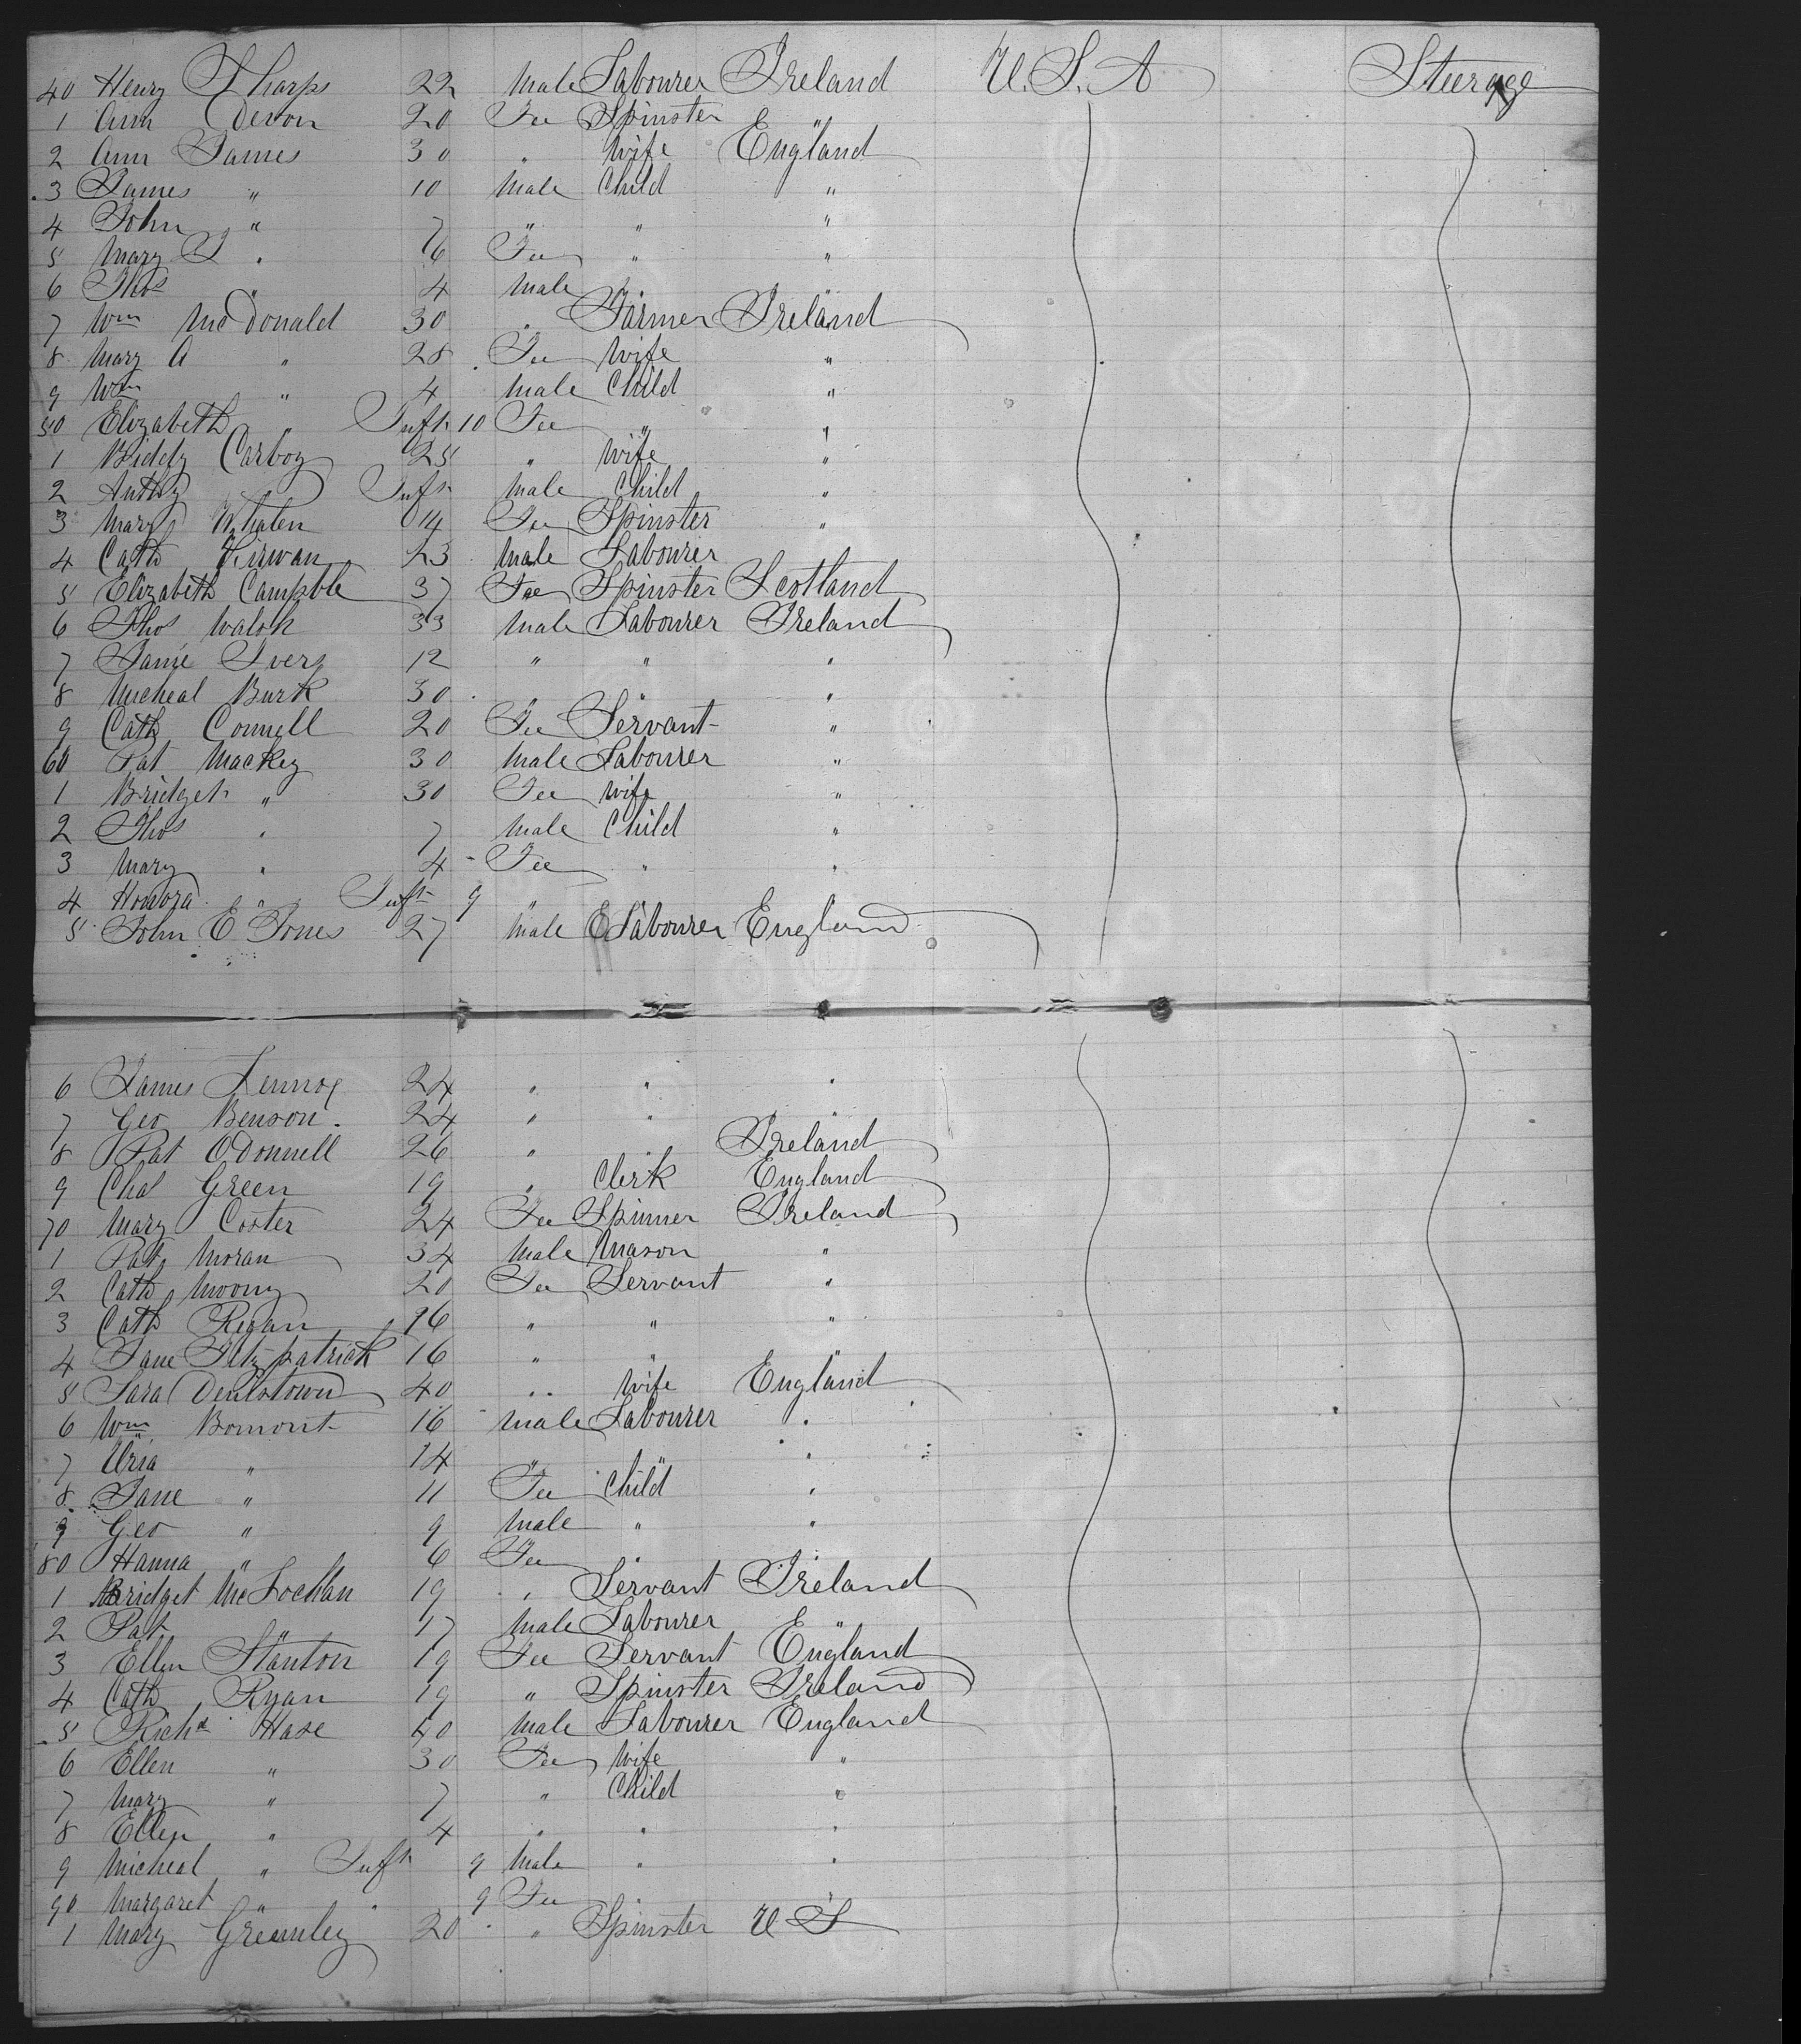 40 Henry Sharps 22 Male Labourer Ireland U.S.A Steerage
1 Ann Devon 20 Fe Spinster "
2 Ann James 30 " Wife England
3 James " 10 Male Child "
4 John " 7 " " "
5 Mary J " 6 Fe " "
6 Thos " 4 Male " "
7 Wm McDonald 30 " Farmer Ireland
8 Mary A " 28 Fe Wife "
9 Wm " 4 Male Child "
50 Elizabeth " Inft 10 Fe " "
1 Biddy Carboy 25 " Wife "
2 Anthy " Inft Male Child "
3 Mary Whalen 14 Fe Spinster "
4 Cath Kirwan 23 Male Labourer
5 Elizabeth Campble 37 Fe Spinster Scotland
6 Thos Walsh 33 Male Labourer Ireland
7 Jame Ivers 12 " " "
8 Micheal Burk 30 " " "
9 Cath Connell 20 Fe Servant "
60 Pat Mackey 30 Male Labourer "
1 Bridget " 30 Fe Wife "
2 Thos " 7 Male Child "
3 Mary " 4 Fe " "
4 Honora " Inft 9 "
5 John E Jones 27 Male Labourer England
6 James Lennox 24 " " "
7 Geo Benson 24 " " "
8 Pat ODonnell 26 " " Ireland
9 Chas Green 19 " Clerk England
70 Mary Coster 24 Fe Spinner Ireland
1 Pat Moran 34 Male Mason "
2 Cath Moony 20 Fe Servant "
3 Cath Regan 16 " " "
4 Jane Fitzpatrick 16 " " "
5 Sara 40 " Wife England
6 Wm Bomont 16 Male Labourer "
7 Uria " 14 " " "
8 Jane " 11 Fe Child "
9 Geo " 9 Male " "
80 Hanna " 6 Fe " "
1 Bridget McLochlan 19 " Servant Ireland
2 Pat " 17 Male Labourer "
3 Ellen Stanton 19 Fe Servant England
4 Cath Ryan 19 " Spinster Ireland
5 Richd Hase Male Labourer England
6 Ellen " 30 Fe Wife "
7 Mary " 7 " Child "
8 Ellen " 4 " " "
9 Micheal " Inft 9 Male " "
90 Margaret " " 9 Fe " "
1 Mary Greemley 20 " Spinster U S